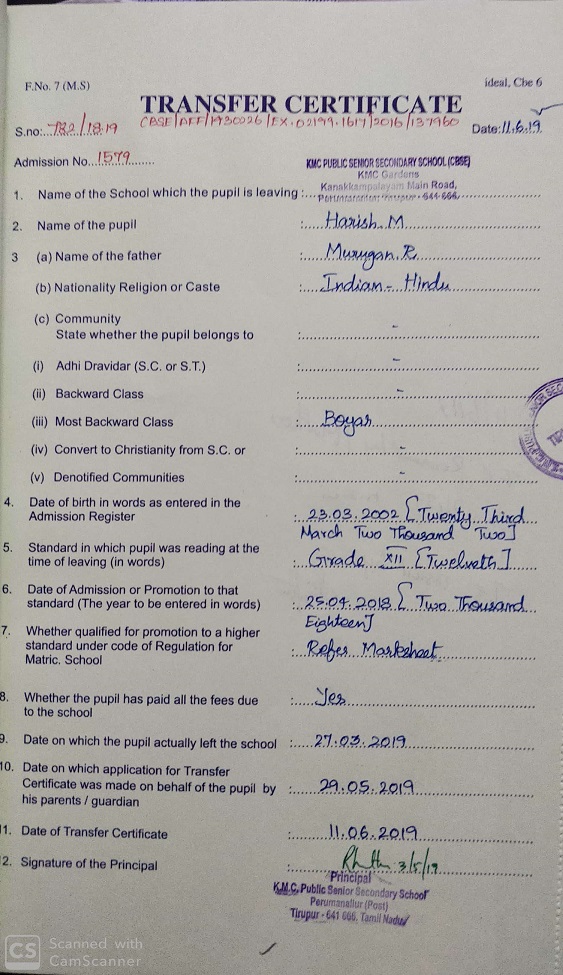 F.No. 7 (M.S) ideal, Cbe 6
TRANSFER CERTIFICATE
S.no: 782/18.19 CBSE/AFF/1930026/EX.02199.1617/2016/137960 Date: 11.6.19
Admission No. 1579
KMC PUBLIC SENIOR SECONDARY SCHOOL (CBSE)
KMC Gardens
1. Name of the School which the pupil is leaving : Kanakkampalayam Main Road,
Tirupur - 641 666.
2. Name of the pupil : Harish. M
3 (a) Name of the father : Murugan. R
(b) Nationality Religion or Caste : Indian - Hindu
(c) Community
State whether the pupil belongs to : -
(i) Adhi Dravidar (S.C. or S.T.) : -
(ii) Backward Class : -
(iii) Most Backward Class : Boyar
(iv) Convert to Christianity from S.C. or : -
(v) Denotified Communities : -
4. Date of birth in words as entered in the
Admission Register : 23.03.2002 [Twenty Third
March Two Thousand Two]
5. Standard in which pupil was reading at the
time of leaving (in words) : Grade XII [Twelveth]
6. Date of Admission or Promotion to that
standard (The year to be entered in words) : 25.04.2018 [Two Thousand
Eighteen]
7. Whether qualified for promotion to a higher
standard under code of Regulation for
Matric. School : Refer Marksheet
8. Whether the pupil has paid all the fees due
to the school : Yes
9. Date on which the pupil actually left the school : 27.03.2019
10. Date on which application for Transfer
Certificate was made on behalf of the pupil by
his parents / guardian : 29.05.2019
11. Date of Transfer Certificate : 11.06.2019
12. Signature of the Principal : 3/5/19
Principal
K.M.C. Public Senior Secondary School
Perumanallur (Post)
Tirupur - 641 666, Tamil Nadu
CS Scanned with
CamScanner